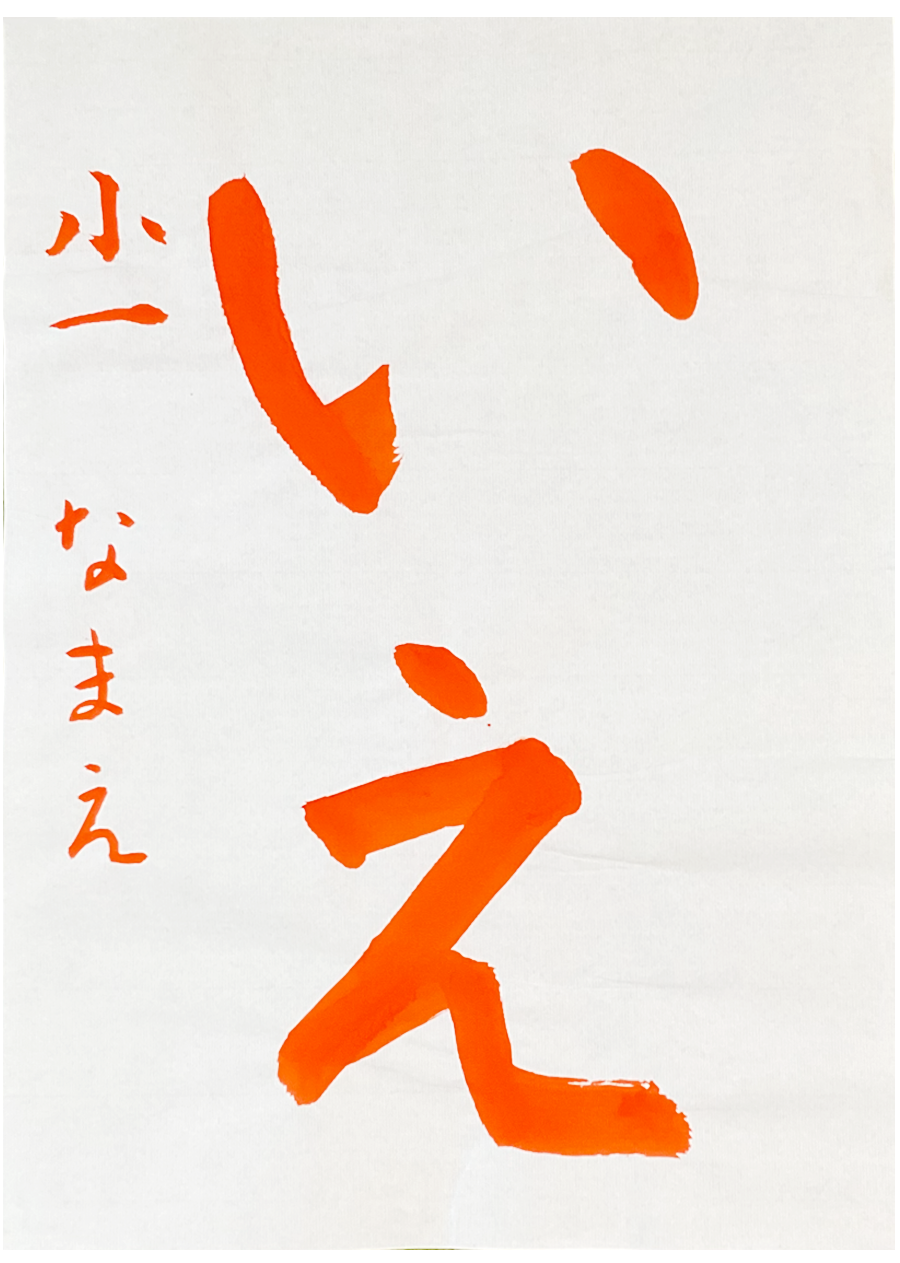 いえ
小一 なまえ